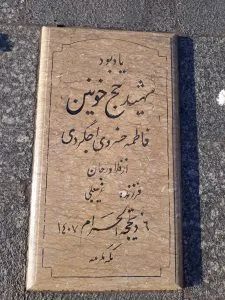 یادبود
شهید حج خونین
فاطمه خسروی اجگردی
از فلاورجان
فرزند: نجفعلی
۶ ذیحجه الحرام ۱۴۰۷
مکه مکرمه